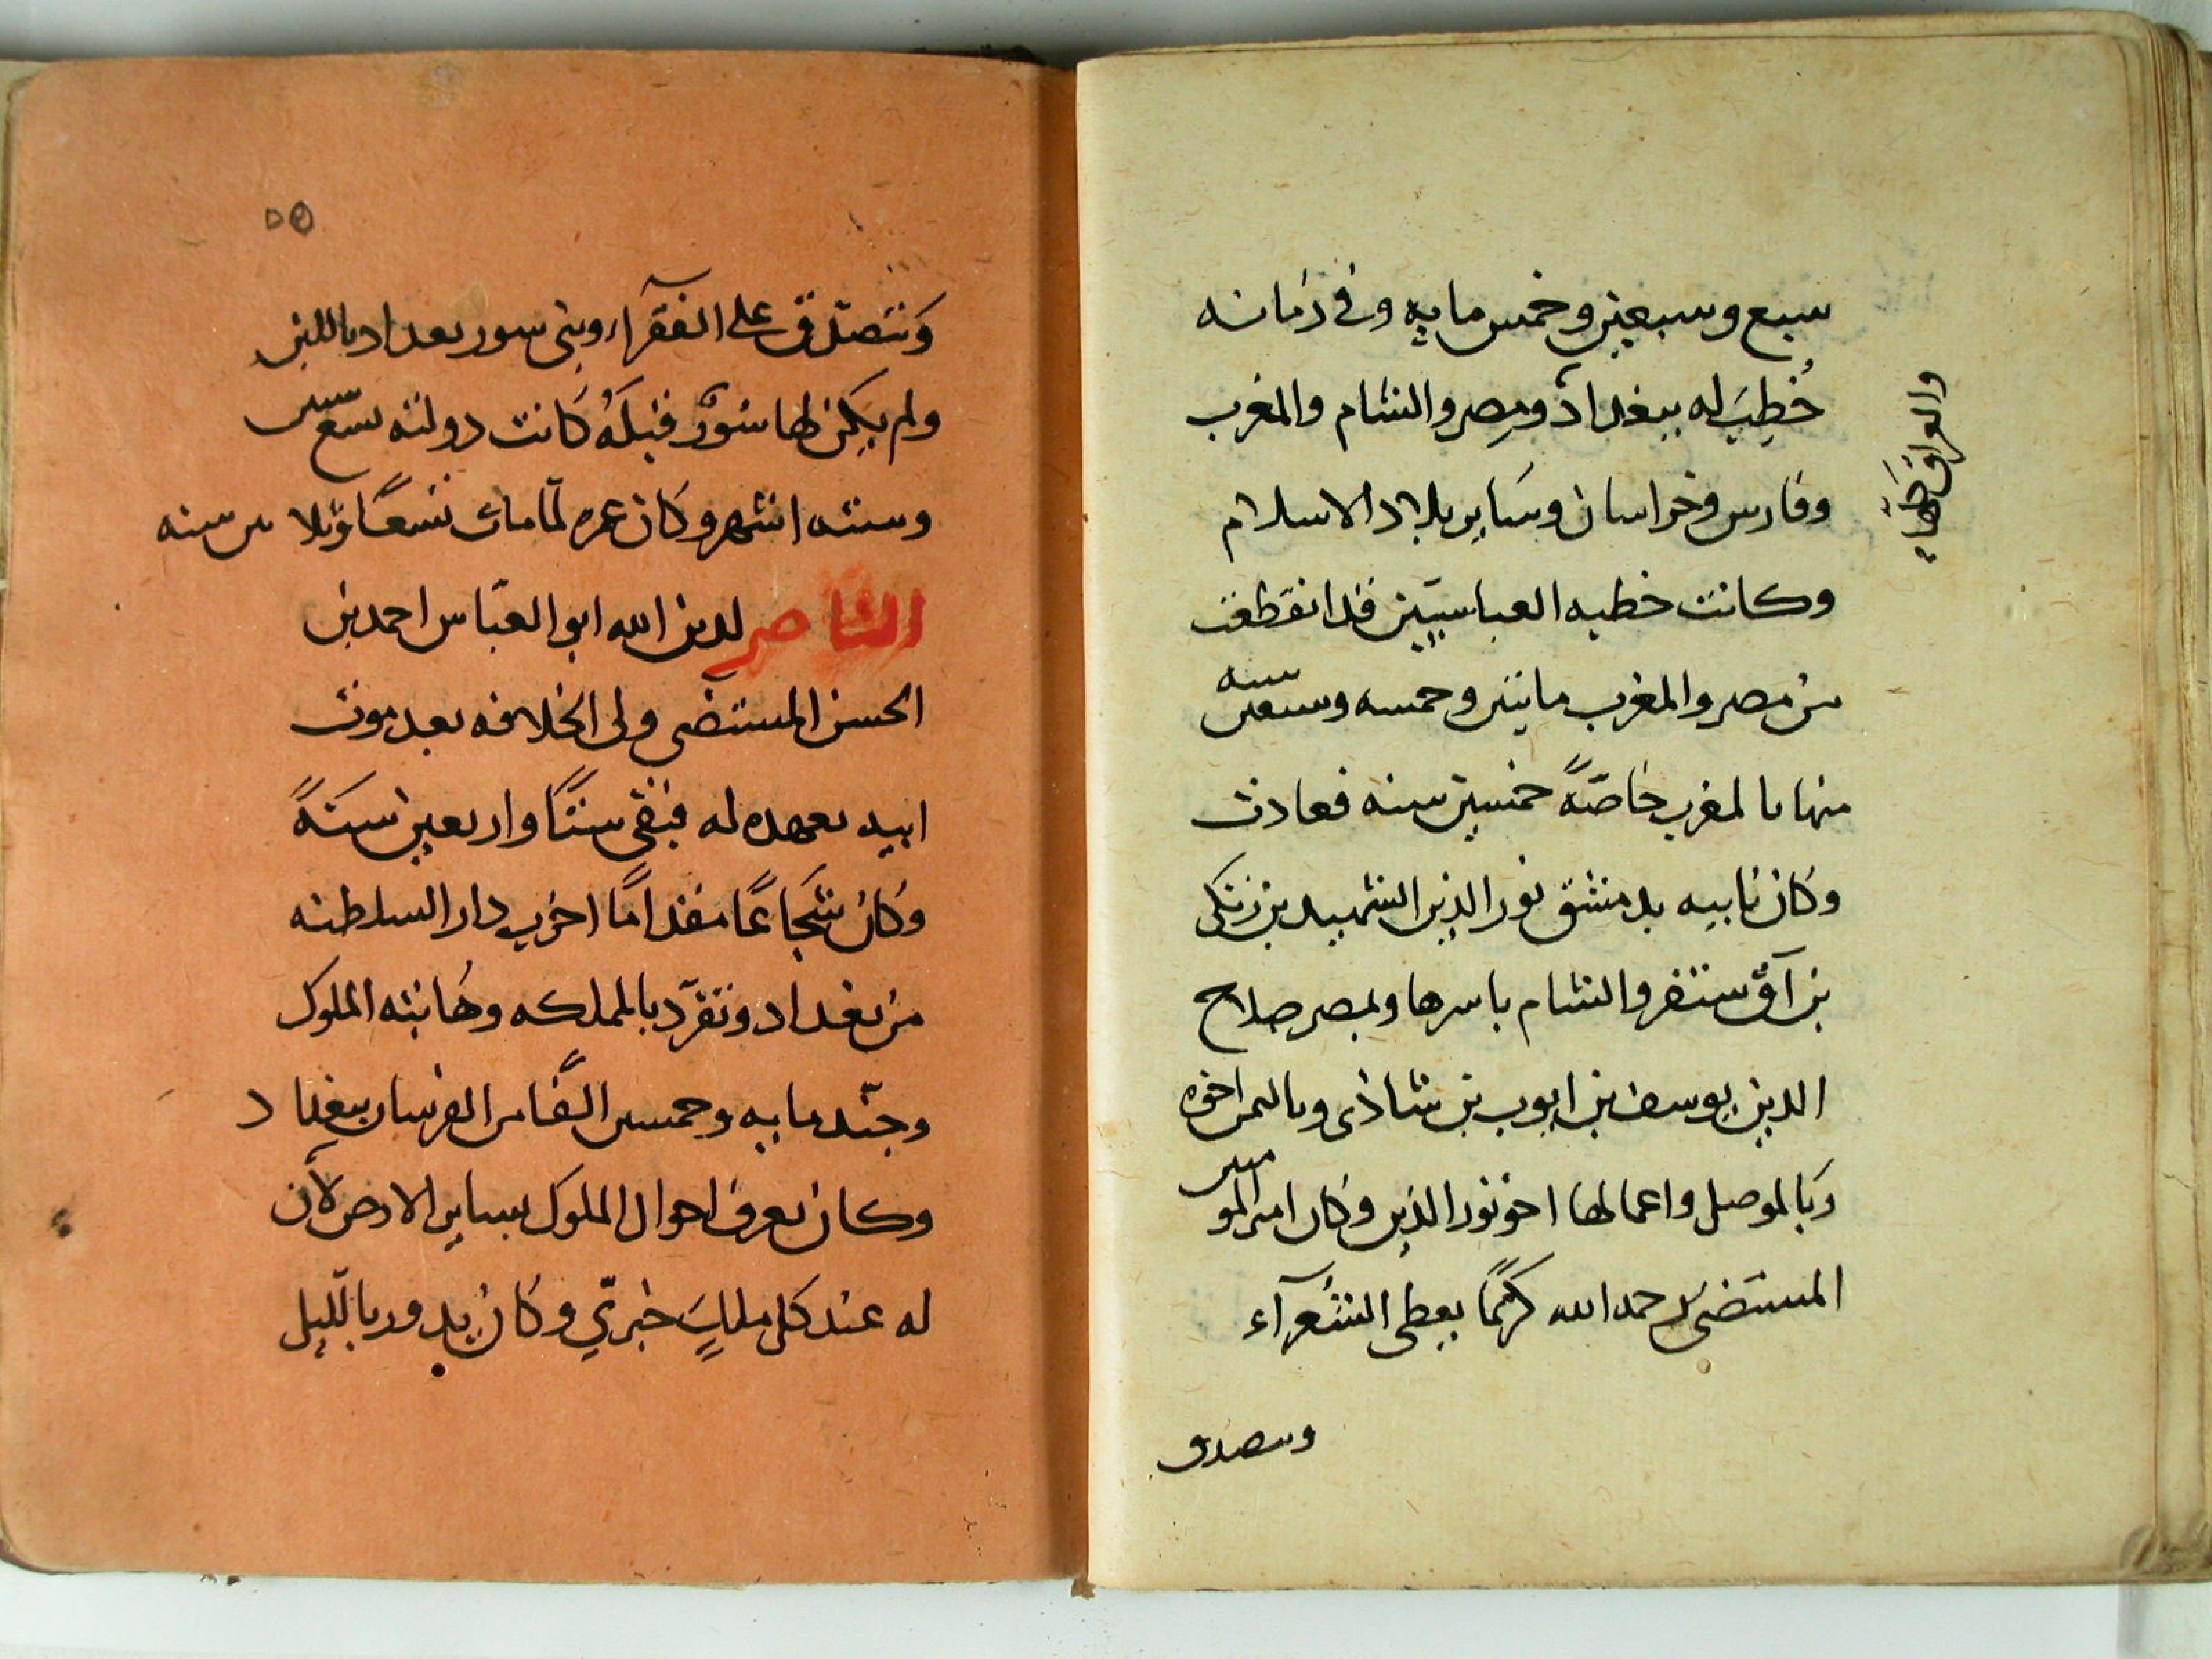 سبع وسبعين وخمس مايه وفى زمانه
خُطِبَ له ببغداد ومصر والشام والمغرب
والعراق
وفارس وخراسان وسَاير بلاد الاسلام
وكانت خطبه العباسيّين قد انقطعت
من مصر والمغرب مايتين وخمسه وسبعين سنه
منها بالمغرب خاصّةً خمسين سنه فعادت
وكان نابيه بدمشق نور الدين الشهيد بن زنكى
بن آق سنقر والشام باسرها وبمصر صلاح
الدين يوسف بن ايوب بن شاذى وباليمن اخوه
وبالموصل واعمالها اخو نور الدين وكان امير المومنين
المستضى رحمه الله كريمًا يعطى الشعرآء
وىىصدق
٥٥
وَيتصدّق على الفقرآء وبنى سور بغداد باللبن
ولم يكن لها سُورٌ قبلَهُ كَانت دولته تسع سنين
وسته اشهر وكان عمره لمّا مات تسعًا وثلاثين سنه
الناصر لدين الله ابو العبّاس احمد بن
الحسن المستضى ولى الخلافه بعد موت
ابيه بعهده له فبقى ستًا واربعين سَنةً
وكان شجَاعًا مقدامًا اخرب دار السلطنه
من بغداد وتفرّد بالمملكه وهَابته الملوك
وجنّد مايه وخمسين الفًا من الفرسان ببغداد
وكان يعرف احوال الملوك بساير الارض لأن
له عند كل ملكٍ خبريّ وكان يدور بالّليل